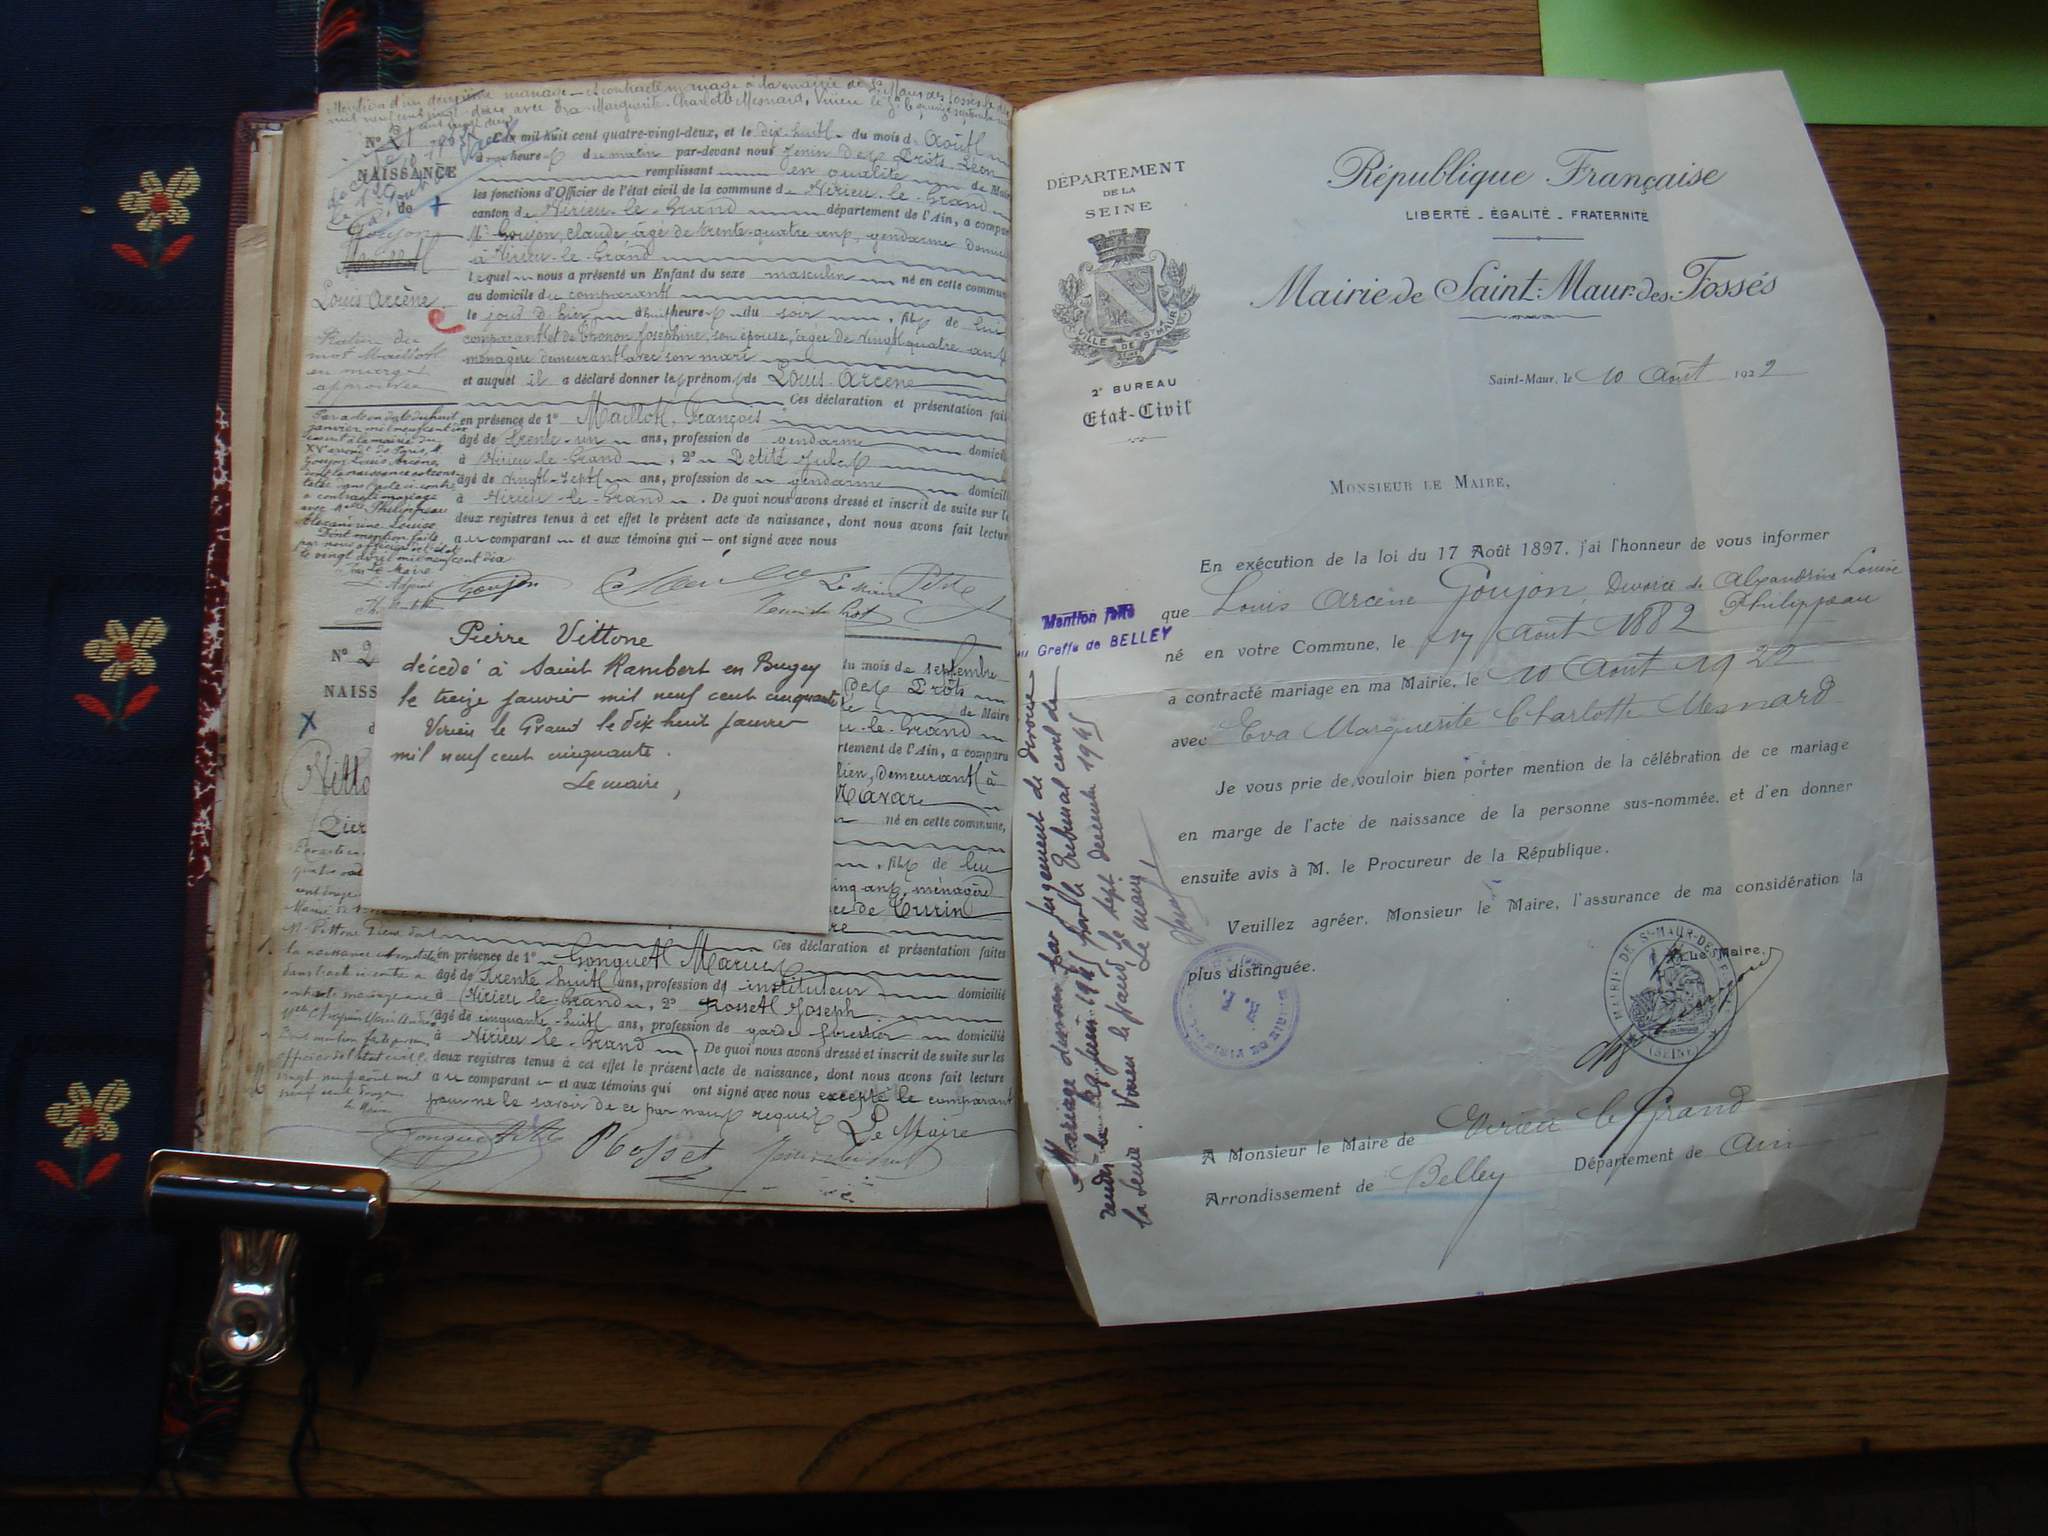 Mention d'un deuxième mariage - a contracté mariage à la mairie de St Maur des Fossés le dix
mil neuf cent vingt deux avec Eva Marguerite Charlotte Mesnard, Virieu le Gd le quinze septembre
N°
NAISSANCE
de
Goujon
Louis Arcène
Rature du
mot Maillott
en marge
approuvée
mil huit cent quatre-vingt-deux, et le dix-huit du mois d Août
heure du matin par-devant nous Jenin des Prôts Léon
remplissant en qualité de Maire
les fonctions d'Officier de l'état civil de la commune de Virieu-le-Grand
canton de Virieu-le-Grand département de l'Ain, a compar
Mr Goujon, Claude âgé de trente-quatre ans, gendarme domici
à Virieu-le-Grand
lequel nous a présenté un Enfant du sexe masculin né en cette commun
au domicile du comparant
le jour d'hier à huit heures du soir, fils de lui
comparant et de Thonon Joséphine, son épouse, âgée de vingt quatre ans
ménagère demeurant avec son mari
et auquel il a déclaré donner les prénoms de Louis-Arcène
Ces déclaration et présentation fait
en présence de 1° Maillot, François
âgé de trente-un ans, profession de gendarme domicil
à Virieu-le-Grand, 2° Petite Jules
âgé de vingt-sept ans, profession de gendarme domicil
à Virieu-le-Grand. De quoi nous avons dressé et inscrit de suite sur l
deux registres tenus à cet effet le présent acte de naissance, dont nous avons fait lectur
au comparant et aux témoins qui – ont signé avec nous
Par acte en date du huit
janvier mil neuf cent dix
dressé à la mairie du
XVe arrondt de Paris, M.
Goujon Louis Arcène,
dont la naissance est cons-
tatée dans l'acte ci-contre
a contracté mariage
avec Melle Philippeau
Alexandrine Louise
Dont mention faite
par nous officier de l'état
le vingt avril mil neuf cent dix
Le Maire
Adjoint
Goujon
Le Maire
Petite
Pierre Vittone
décédé à Saint Rambert en Bugey
le treize janvier mil neuf cent cinquante
Virieu le Grand le dix huit janvier
mil neuf cent cinquante.
Le maire,
N° 2
NAISS
du mois de septembre
des Prôts
de Maire
u-le-Grand
rtement de l'Ain, a comparu
lien, demeurant à
Navare
né en cette commune,
, fils de lui
inq ans, ménagère
ce de Turin
Mr Vittone Pierre dont
la naissance est constatée
dans l'acte ci-contre a
contracté mariage avec
Dont mention faite par nous
officier de l'état civil.
vingt neuf août mil
neuf cent
Le Maire
Ces déclaration et présentation faites
en présence de 1° Gonguet Marius
âgé de trente-huit ans, profession d'instituteur domicilié
à Virieu-le-Grand, 2° Rosset Joseph
âgé de cinquante-huit ans, profession de garde forestier domicilié
à Virieu-le-Grand. De quoi nous avons dressé et inscrit de suite sur les
deux registres tenus à cet effet le présent acte de naissance, dont nous avons fait lecture
au comparant et aux témoins qui ont signé avec nous excepté le comparant
pour ne le savoir de ce par nous requis Le Maire
Rosset
DÉPARTEMENT
DE LA
SEINE
VILLE DE ST MAUR
2e BUREAU
Etat-Civil
République Française
LIBERTÉ - ÉGALITÉ - FRATERNITÉ
Mairie de Saint-Maur-des-Fossés
Saint-Maur, le 10 Août 1922
MONSIEUR LE MAIRE,
En exécution de la loi du 17 Août 1897, j'ai l'honneur de vous informer
que Louis Arcène Goujon, Divorcé de Alexandrine Louise
Philippeau
né en votre Commune, le 17 Août 1882
a contracté mariage en ma Mairie, le 10 Août 1922
avec Eva Marguerite Charlotte Mesnard
Je vous prie de vouloir bien porter mention de la célébration de ce mariage
en marge de l'acte de naissance de la personne sus-nommée, et d'en donner
ensuite avis à M. le Procureur de la République.
Veuillez agréer, Monsieur le Maire, l'assurance de ma considération la
plus distinguée.
Le Maire,
MAIRIE DE ST-MAUR-DES-FOSSÉS
(SEINE)
A Monsieur le Maire de Virieu le Grand
Arrondissement de Belley Département de Ain
Mention faite
au Greffe de BELLEY
Mariage dissous par jugement de divorce
rendu le 29 juin 1945 par le Tribunal civil de
la Seine. Virieu le Grand le sept décembre 1945
Le maire